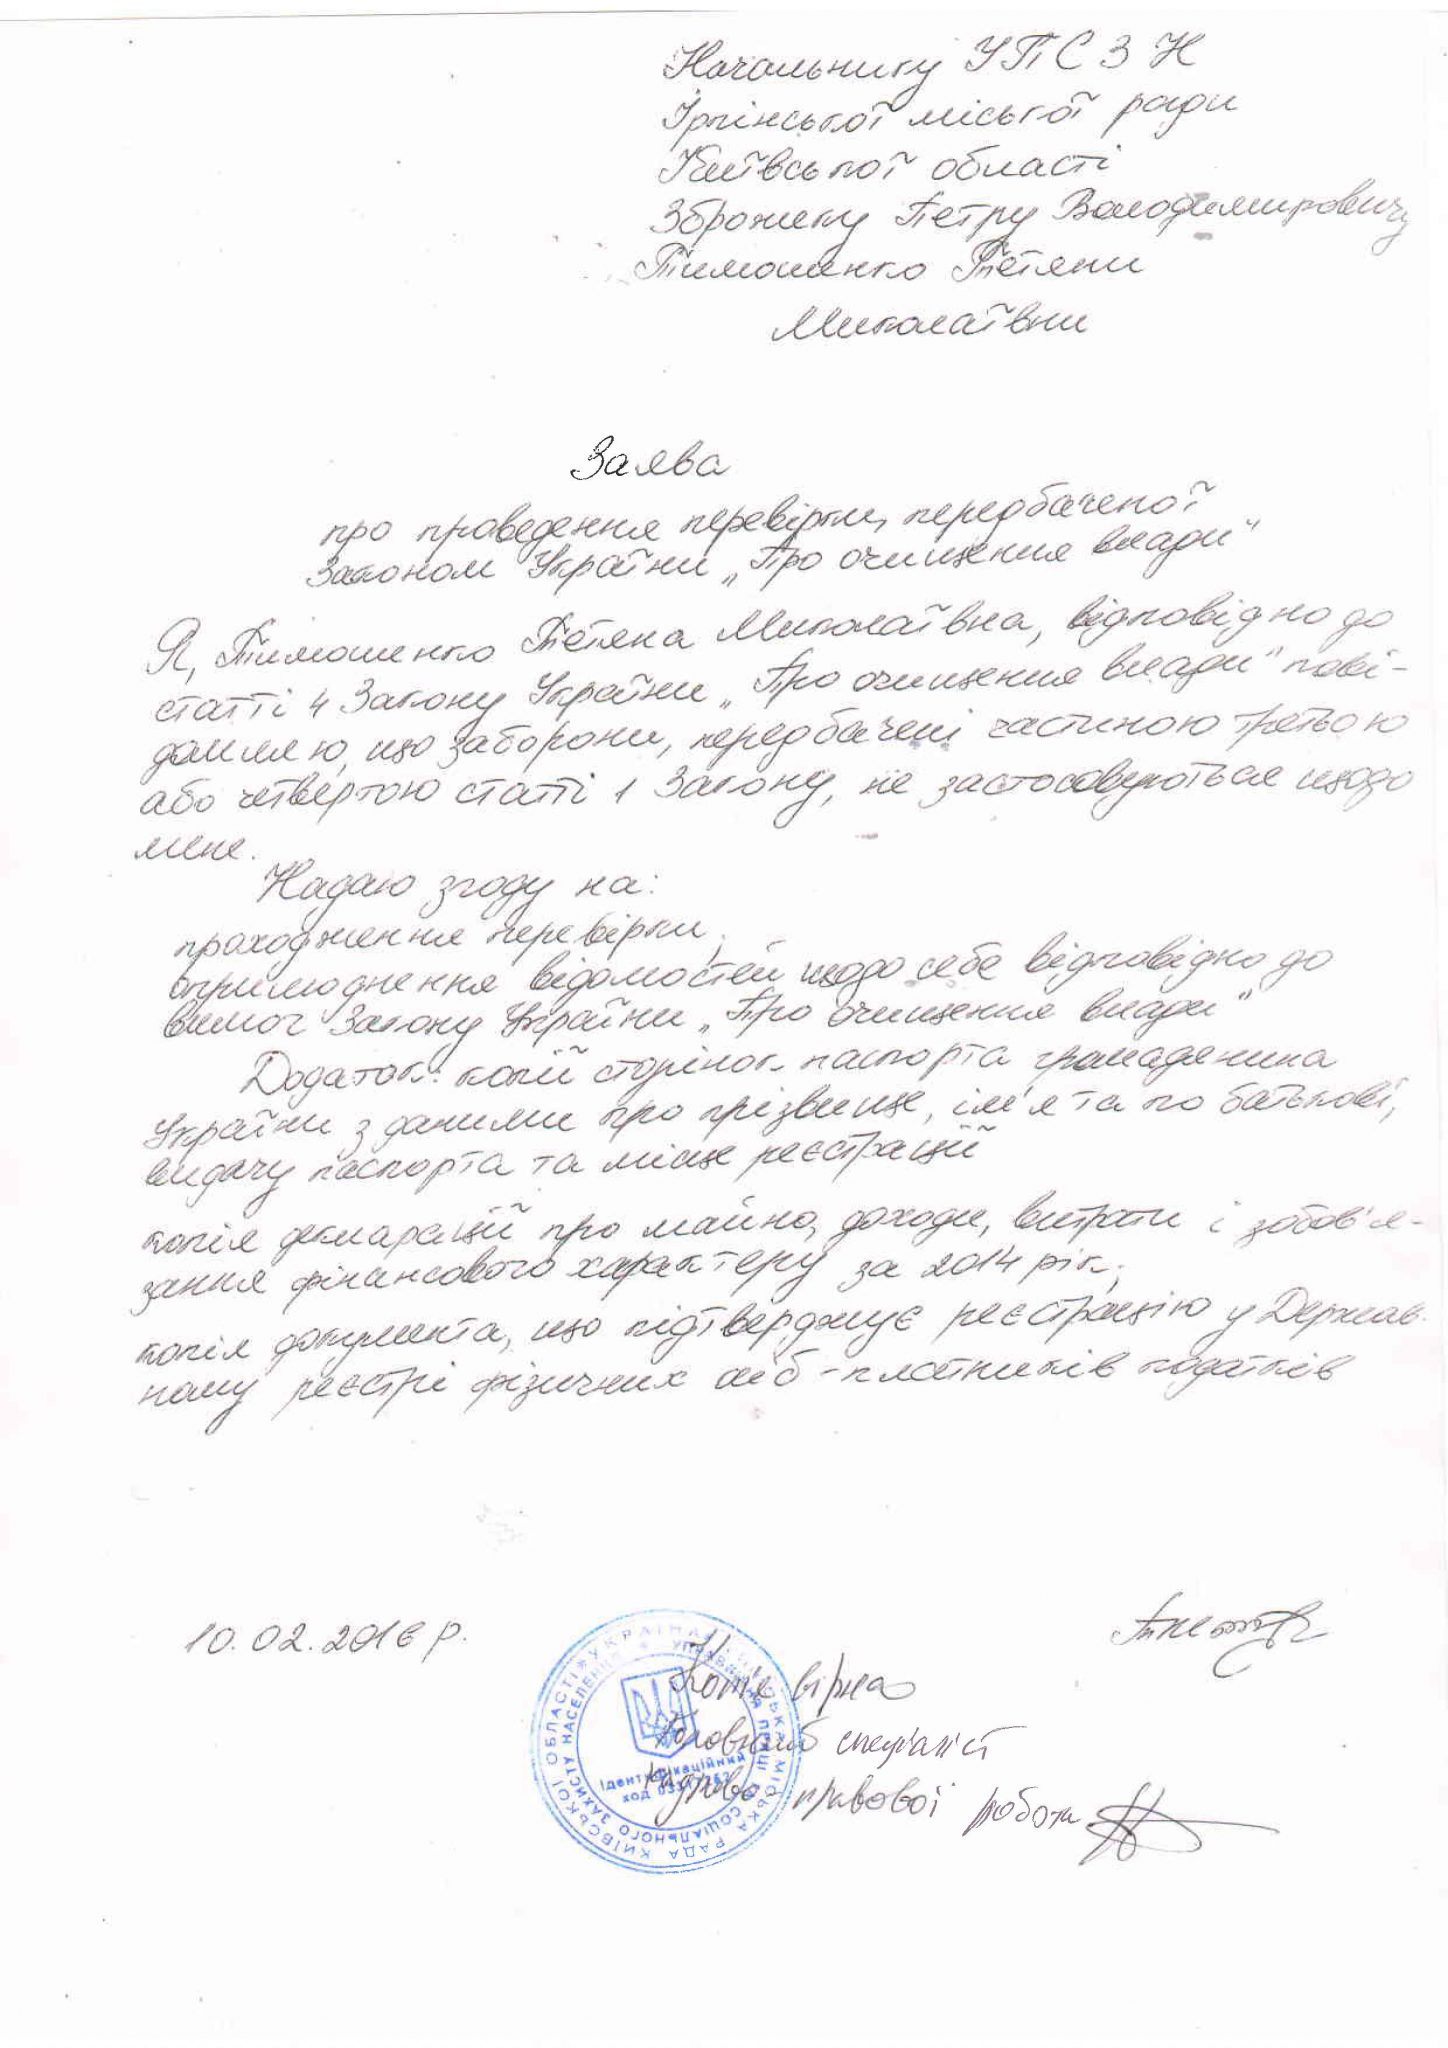 Начальнику УПСЗН
Ірпінської міської ради
Київської області
Зброжеку Петру Володимировичу
Тимошенко Тетяни
Миколаївни
Заява
про проведення перевірки, передбаченої
Законом України „Про очищення влади"
Я, Тимошенко Тетяна Миколаївна, відповідно до
статті 4 Закону України „Про очищення влади" пові-
домляю, що заборони, передбачені частиною третьою
або четвертою статті 1 Закону, не застосовуються щодо
мене.
Надаю згоду на:
проходження перевірки;
оприлюднення відомостей щодо себе відповідно до
вимог Закону України „Про очищення влади"
Додаток: копії сторінок паспорта громадянина
України з даними про прізвище, ім'я та по батькові,
видачу паспорта та місце реєстрації
копія декларації про майно, доходи, витрати і зобов'я-
зання фінансового характеру за 2014 рік;
копія документа, що підтверджує реєстрацію у Держав-
ному реєстрі фізичних осіб-платників податків
10.02.2016 р.
Копія вірна
Головний спеціаліст
кадрово-правової роботи
УКРАЇНА ІРПІНСЬКА МІСЬКА РАДА КИЇВСЬКОЇ ОБЛАСТІ
УПРАВЛІННЯ ПРАЦІ ТА СОЦІАЛЬНОГО ЗАХИСТУ НАСЕЛЕННЯ
Ідентифікаційний
код